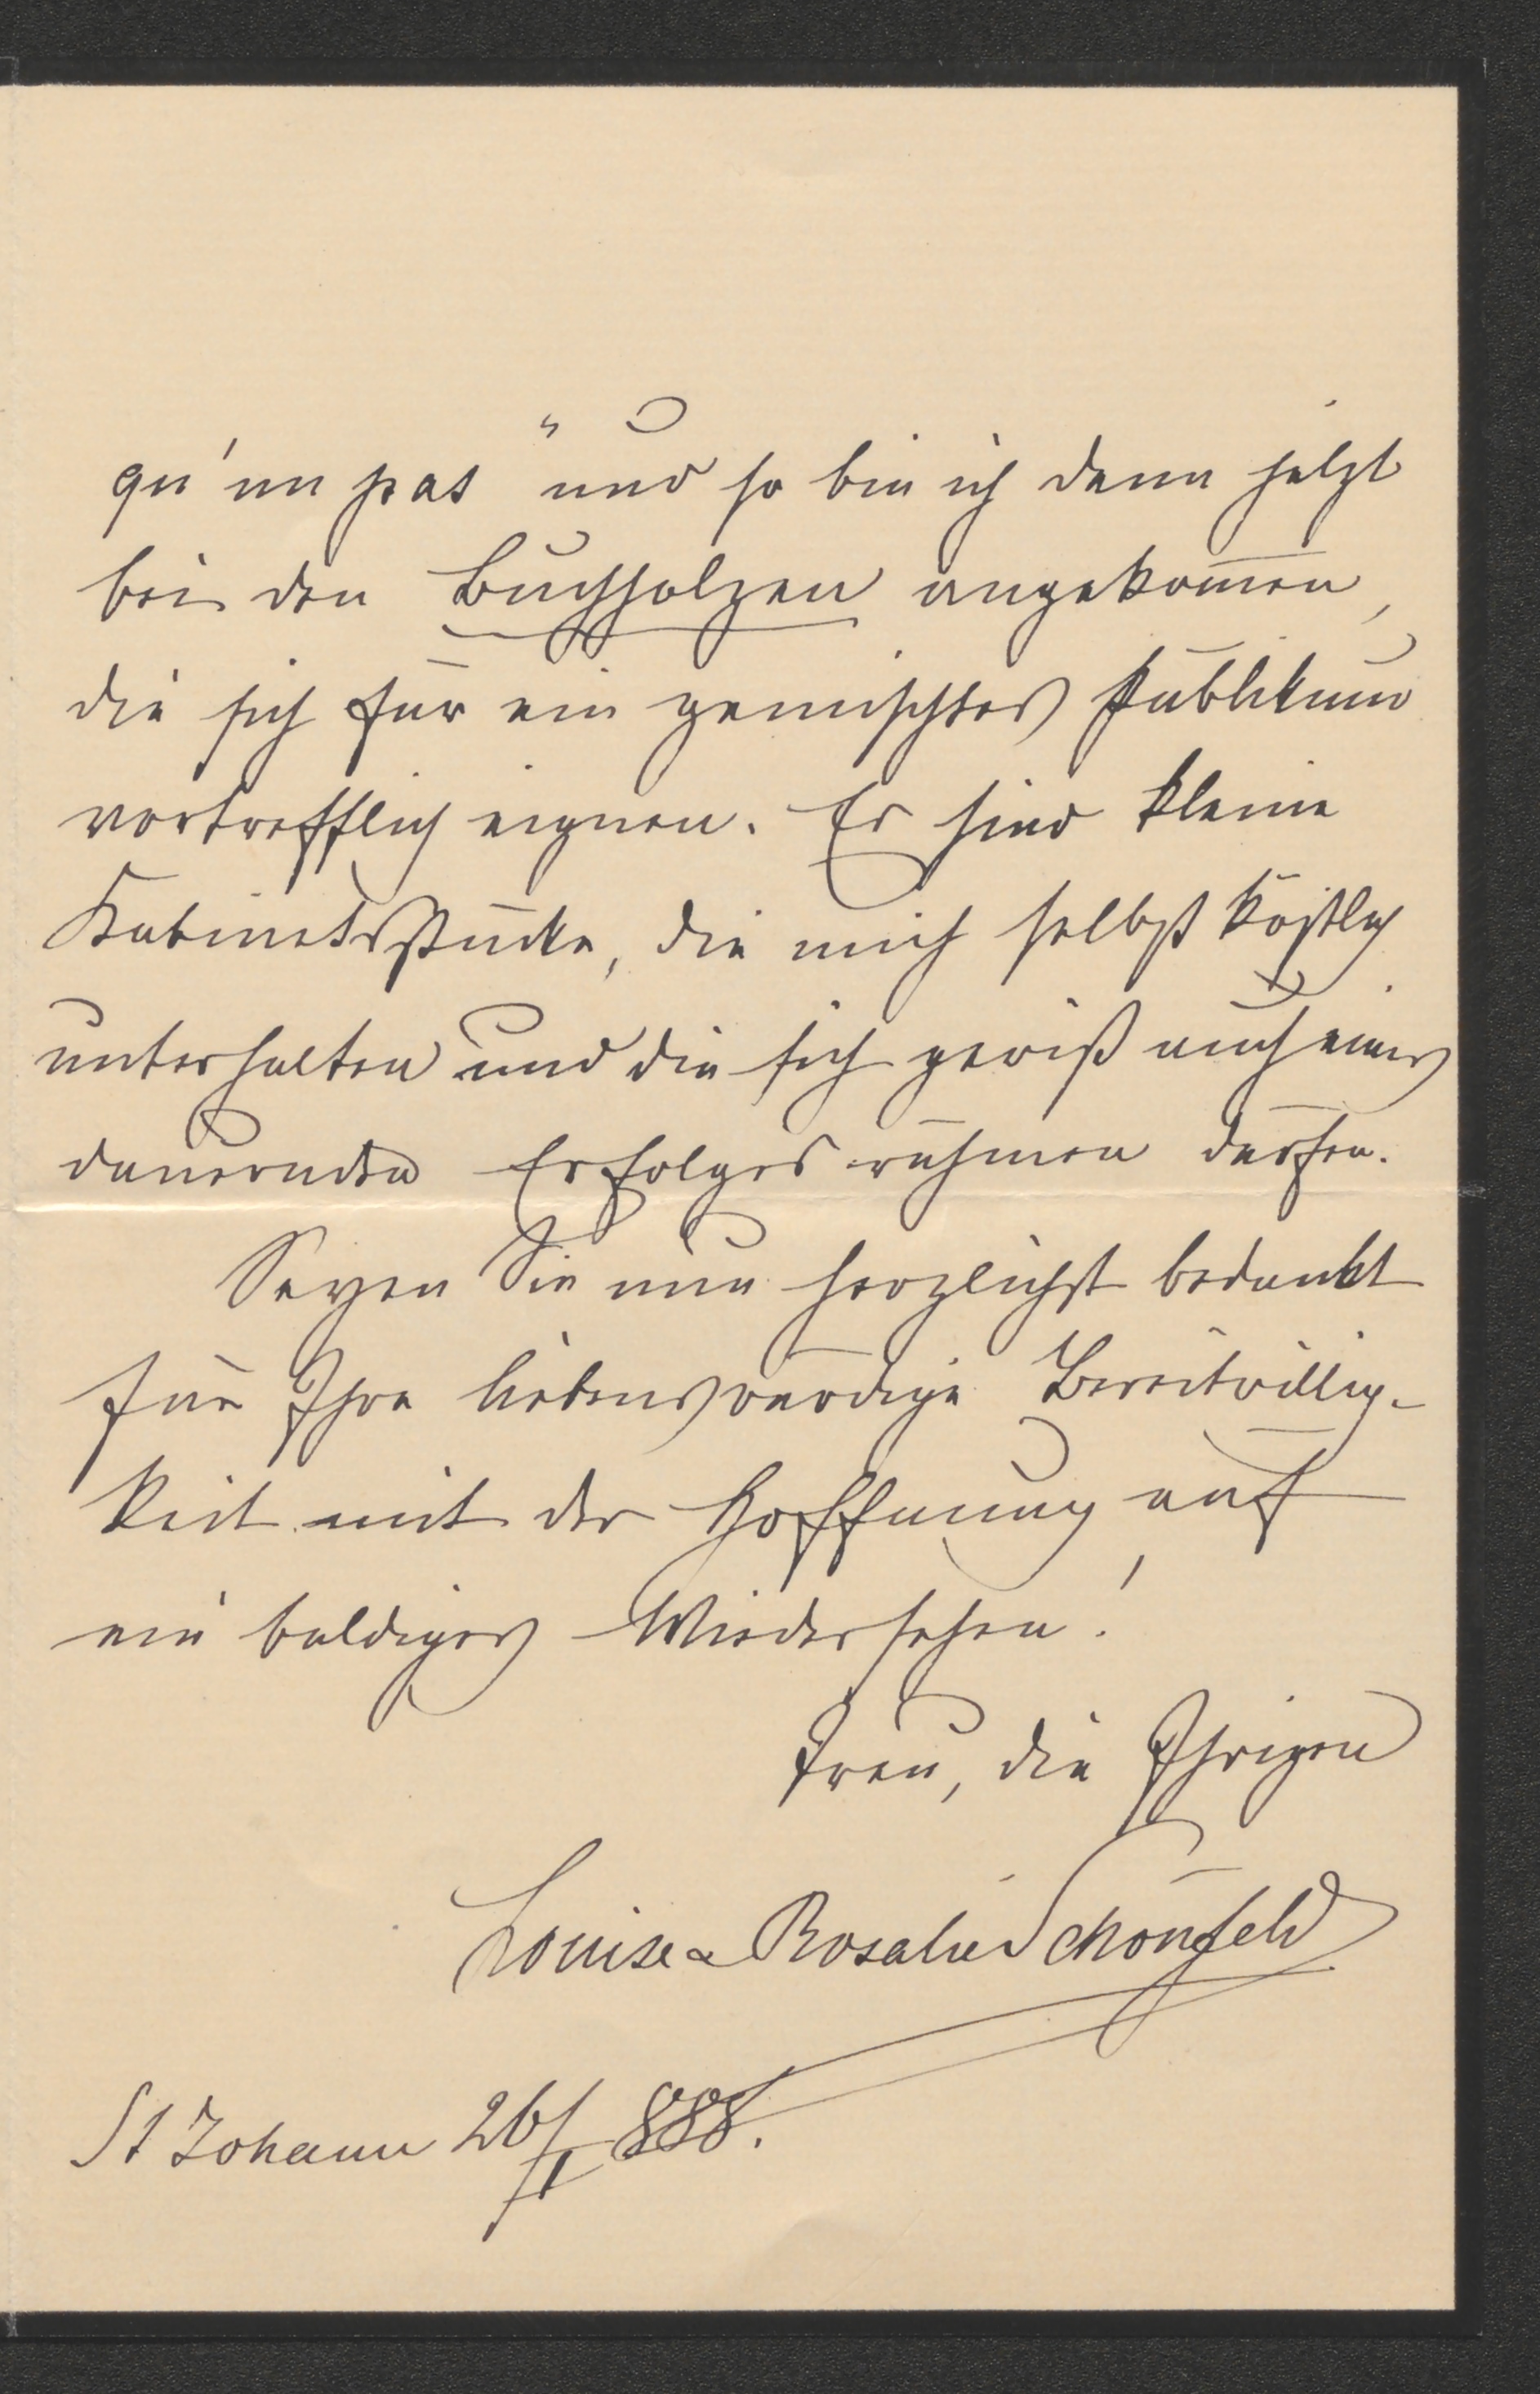 qu'un pas" und so bin ich denn jetzt
bei den Buchholzen angekom̄en,
die sich für ein gemischtes Publikum
vortrefflich eignen. Es sind kleine
Kabinetsstücke, die mich selbst köstlich
unterhalten und die sich gewiß auch eines
dauernden Erfolges rühmen dürfen.
Seyen Sie nun herzlichst bedankt
für Ihre liebenswürdige Bereitwillig-
keit mit der Hoffnung auf
ein baldiges Wiedersehen!
Treu, die Ihrigen
Louise & Rosalie Schönfeld
St Johann 26/I 888.